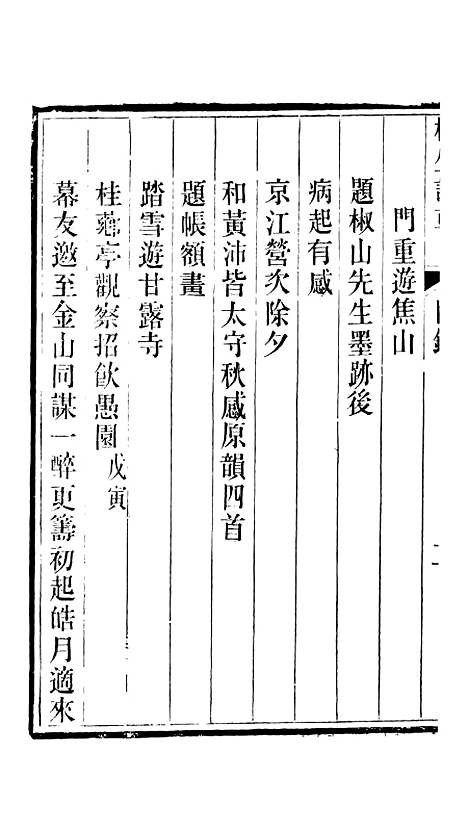 門重遊焦山
題椒山先生墨跡後
病起有感
京江營次除夕
和黃沛皆太守秋感原韻四首
題帳額畫
踏雪遊甘露寺
桂薌亭觀察招飲愚園 戊寅
幕友邀至金山同謀一醉更籌初起皓月適來